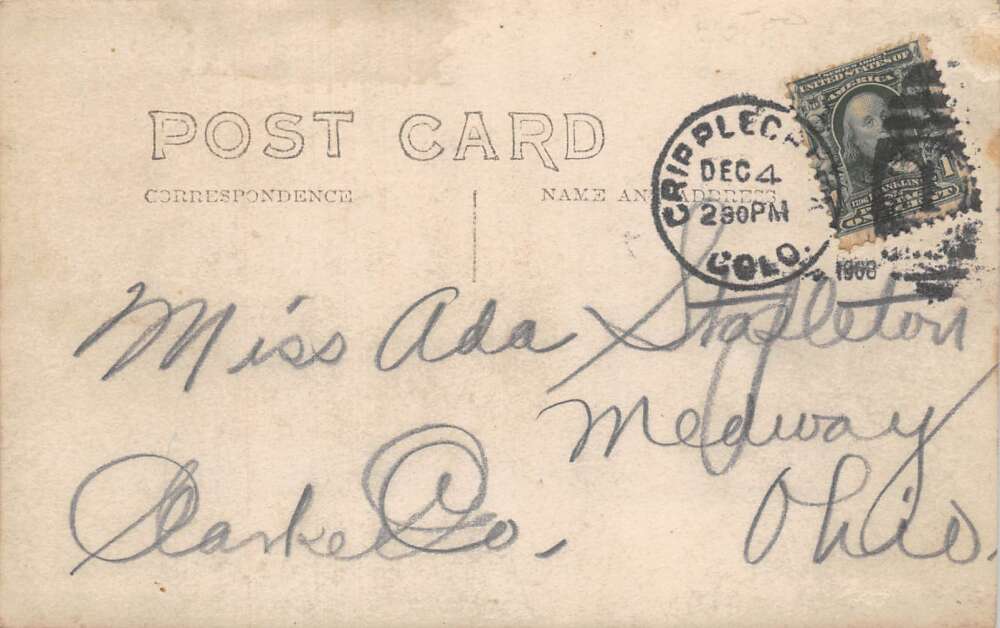 POST CARD
CORRESPONDENCE
NAME AND ADDRESS
CRIPPLE
DEC 4
230PM
COLO.
1908
UNITED STATES OF
AMERICA
FRANKLIN
1
Miss Ada Stapleton
Medway
Clarke Co. Ohio.